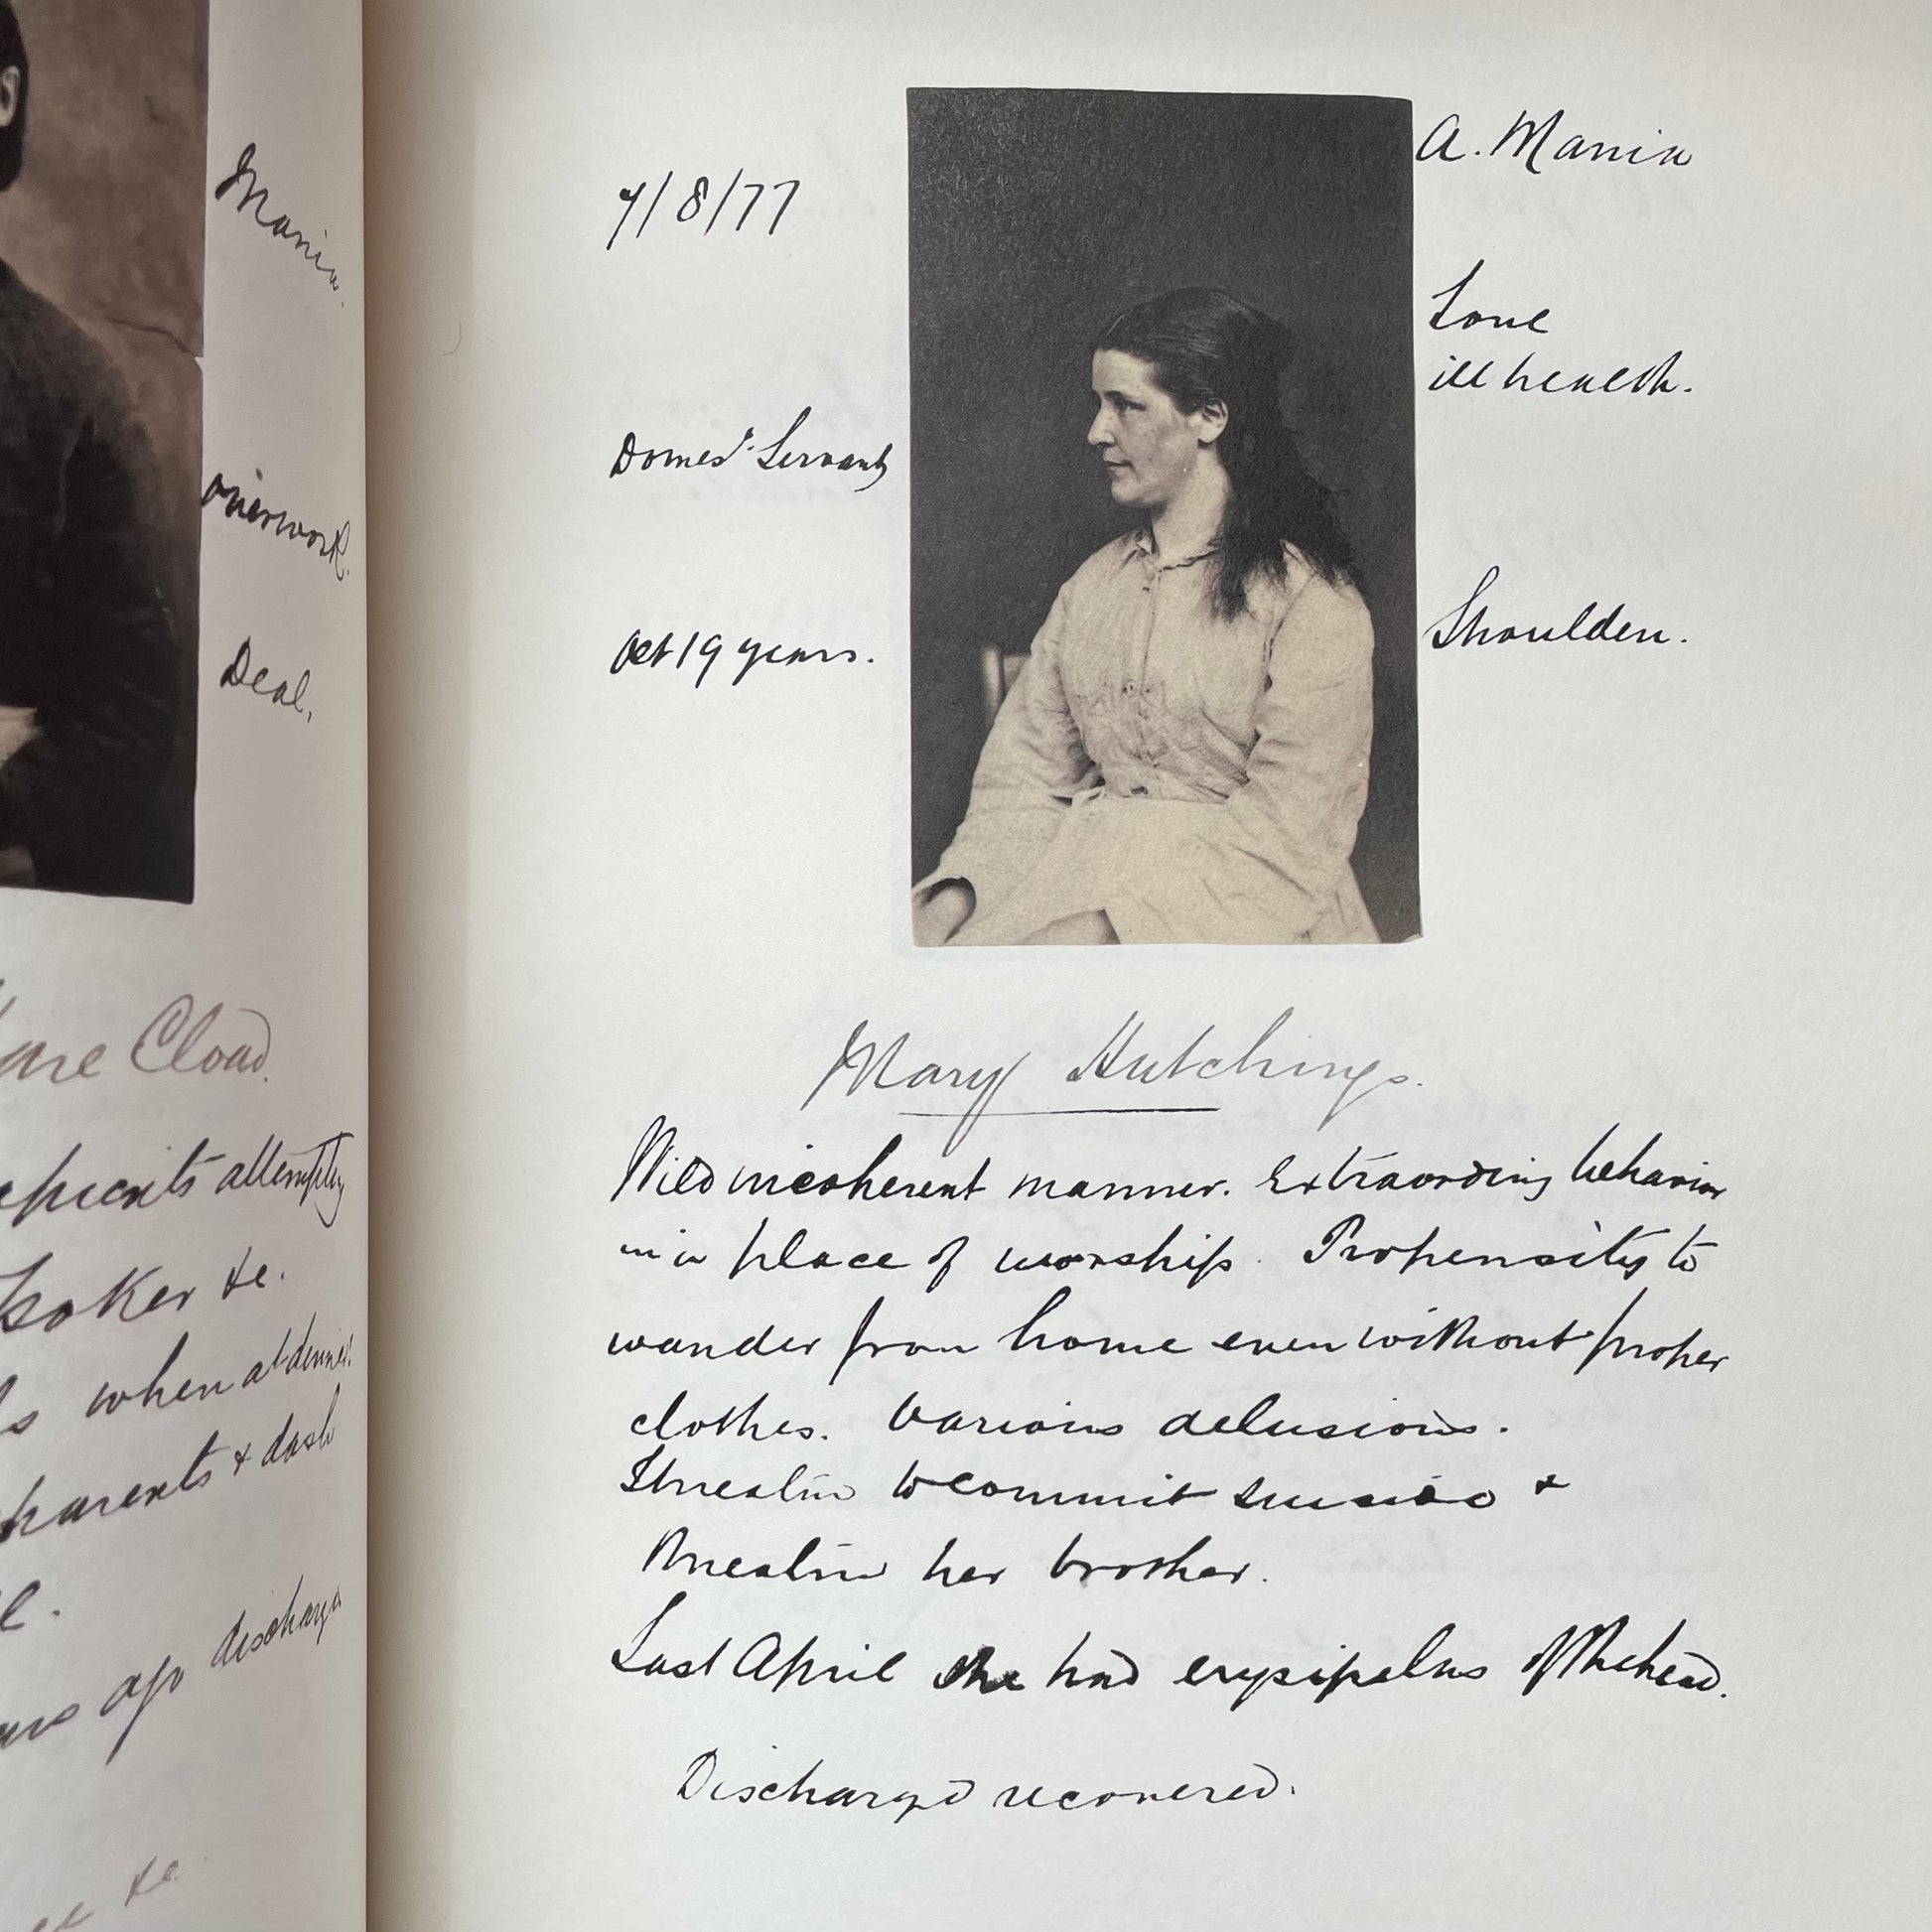 Mania.
overwork.
Deal.
Cload.
attempting
Poker &c.
when at dinner
parents & dash
ago discharged
&c.
7/8/77
A. Mania
Love
ill health.
Domest. Servant
Aet 19 years.
Shoulden.
Mary Hutchings.
Wild incoherent manner. Extraordiny behavior
in a place of worship. Propensity to
wander from home even without proper
clothes. Various delusions.
Threatens to commit suicide &
Threatens her brother.
Last April she had erysipelas of the head.
Discharged recovered.